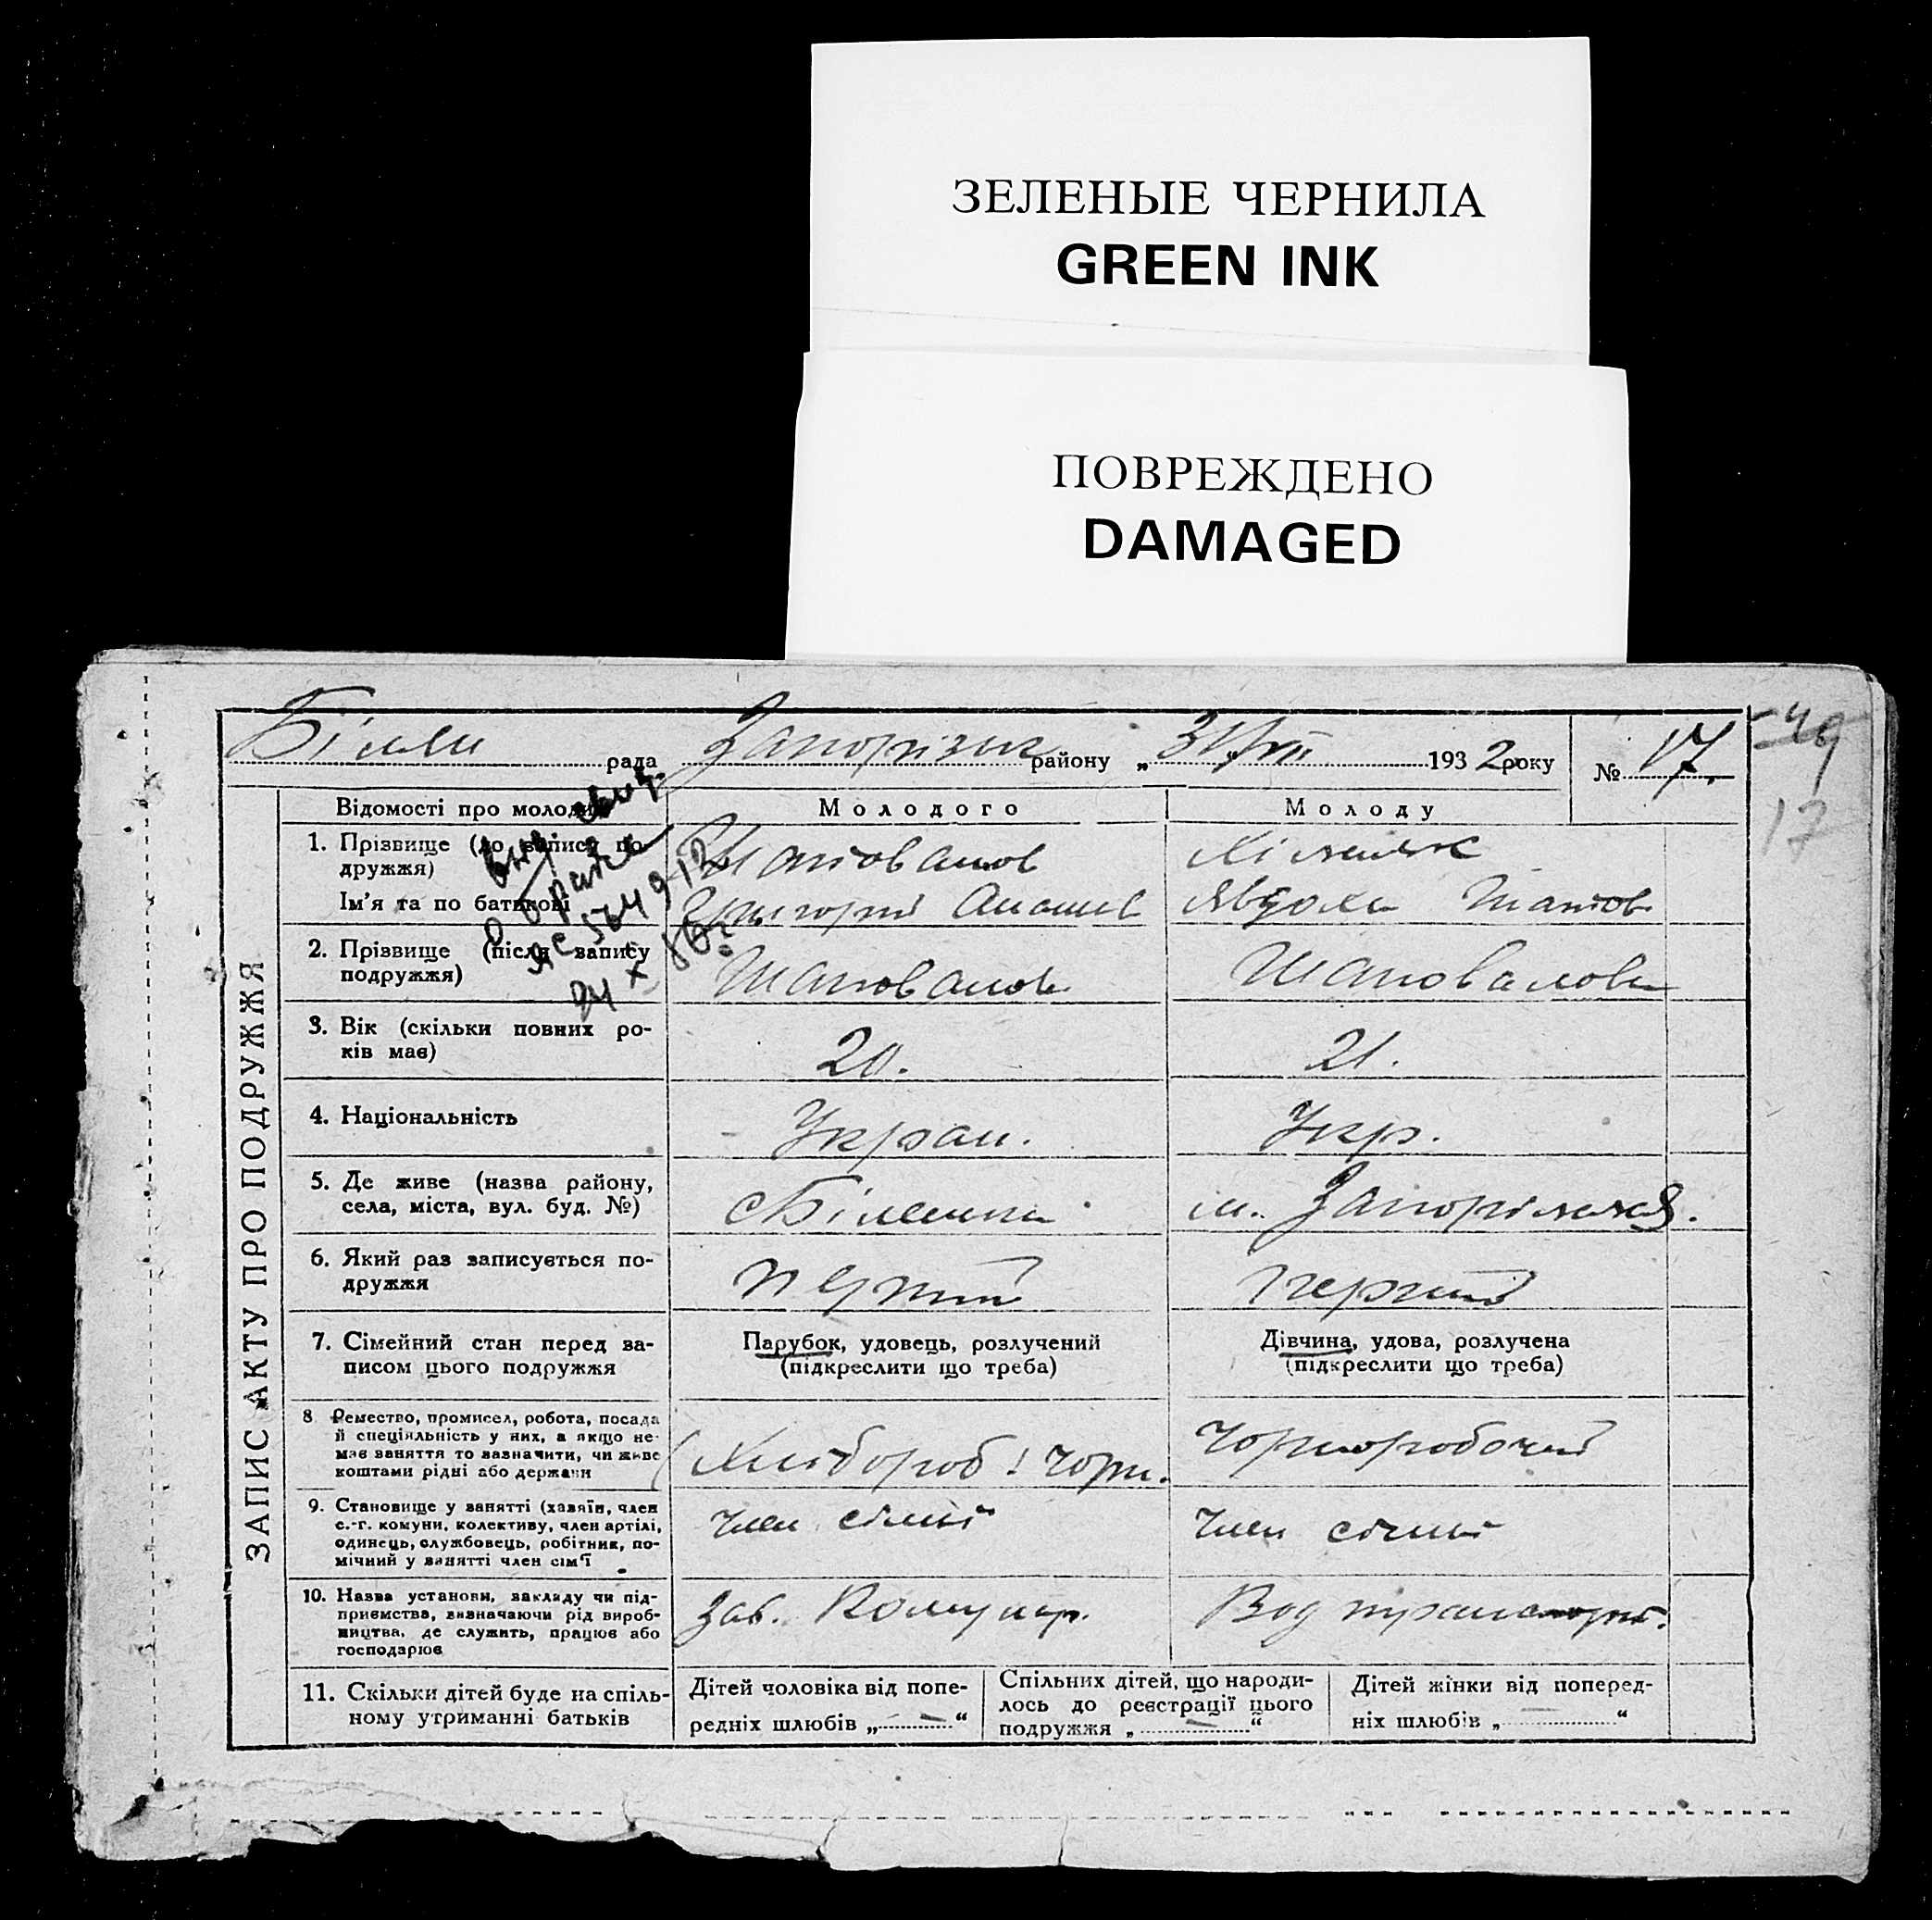 ЗЕЛЕНЫЕ ЧЕРНИЛА
GREEN INK
ПОВРЕЖДЕНО
DAMAGED
рада району „ 31/VII 1932 року № 17.
49
17
ЗАПИС АКТУ ПРО ПОДРУЖЖЯ
Відомості про молодих
Молодого
Молоду
1. Прізвище (до запису по-
дружжя)
Ім'я та по батькові
Шаповалов
Григорій
2. Прізвище (після запису
подружжя)
Шаповалов
Шаповалова
3. Вік (скільки повних ро-
ків має)
20.
21.
4. Національність
Украи.
Укр.
5. Де живе (назва району,
села, міста, вул. буд. №)
м. Запоріжжя.
6. Який раз записується по-
дружжя
перший
7. Сімейний стан перед за-
писом цього подружжя
Парубок, удовець, розлучений
(підкреслити що треба)
Дівчина, удова, розлучена
(підкреслити що треба)
8 Ремество, промисел, робота, посада
й спеціяльність у них, а якщо не-
має заняття то зазначити, чи живе
коштами рідні або держави
Хлібороб! Чорн.
Чорноробочий
9. Становище у занятті (хазяїн, член
с.-г. комуни, колективу, член артілі,
одинець, службовець, робітник, по-
мічний у занятті член сім'ї
Член сімї
Член сімї
10. Назва установи, закладу чи під-
приємства, визначаючи рід вироб-
ництва, де служить, працює або
господарює
Зав. Комунар.
Вод транспорт.
11. Скільки дітей буде на спіль-
ному утриманні батьків
Дітей чоловіка від попе-
редніх шлюбів „ — “
Спільних дітей, що народи-
лось до реєстрації цього
подружжя „ — “
Дітей жінки від поперед-
ніх шлюбів „ — “